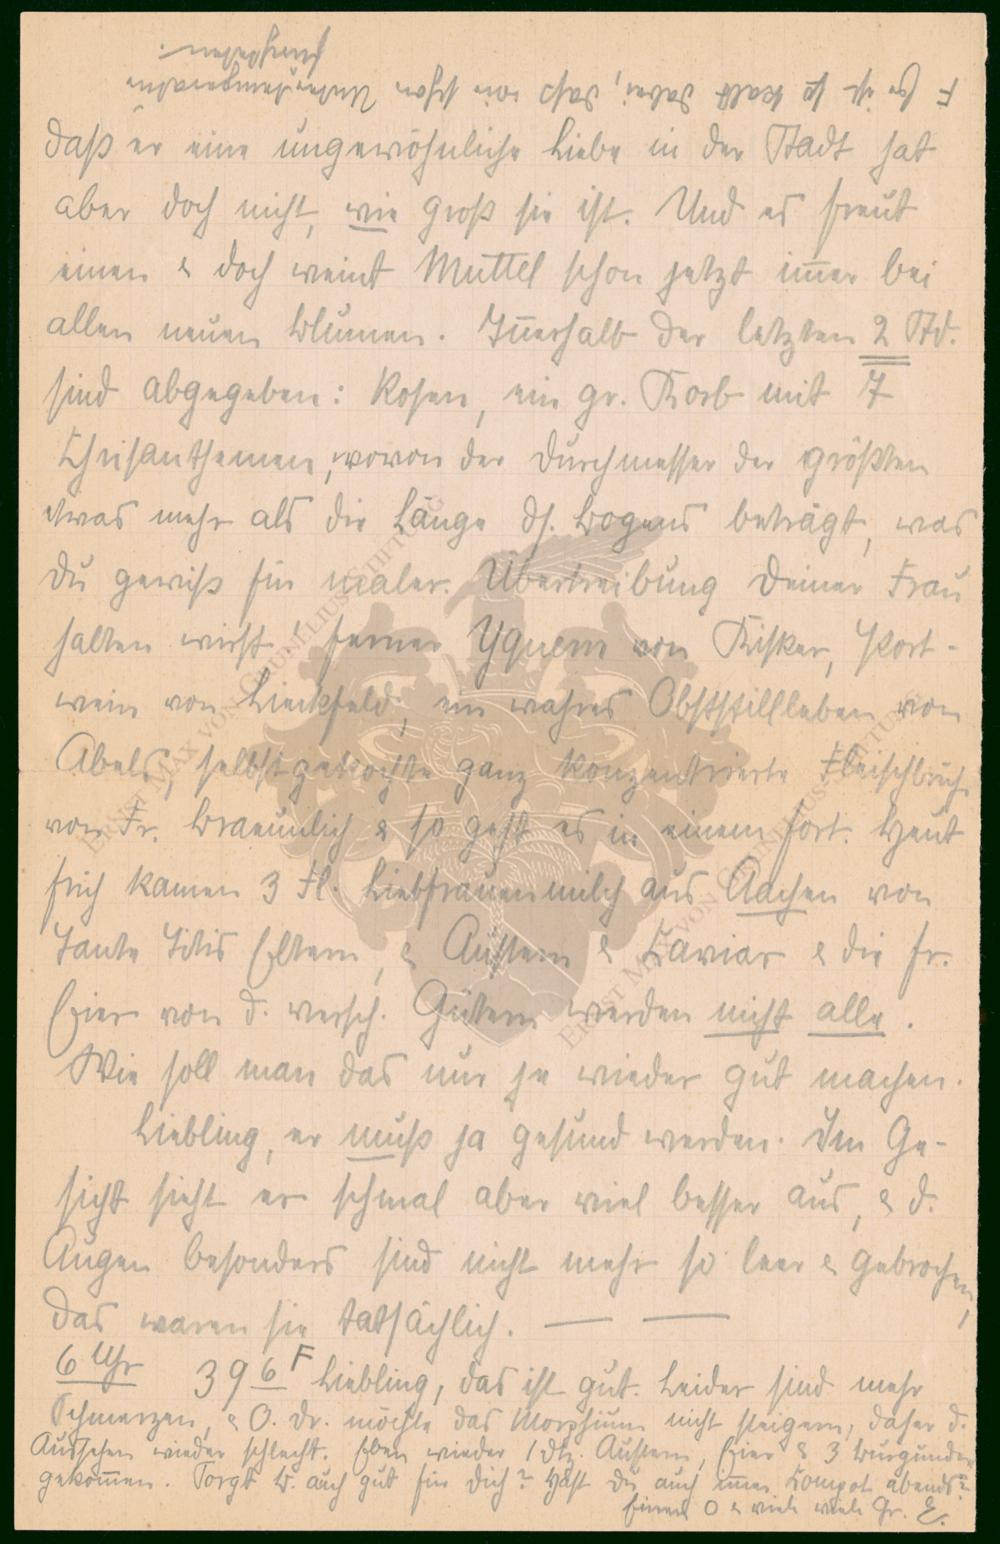 F Es ist so kalt dabei, daß wir schon Untertemperaturen
fürchten.
daß er eine ungewöhnliche Liebe in der Stadt hat
aber doch nicht, wie groß sie ist. Und es freut
einen & doch weint Muttel schon jetzt im̅er bei
allen neuen Blumen. In̅erhalb der letzten 2 Std.
sind abgegeben: Rosen, ein gr. Korb mit 7
Chrisanthemen, wovon der Durchmesser der größten
etwas mehr als die Länge ds. Bogens beträgt, was
Du gewiß für maler. Übertreibung Deiner Frau
halten wirst, ferner Yquem von Kisker, Port-
wein von Lieckfeld, ein wahres Obststillleben von
Abels, selbstgekochte ganz konzentrierte Fleischbrüh
von Fr. Braeunlich & so geht es in einem fort. Heut
früh kamen 3 Fl. Liebfrauenmilch aus Aachen von
Tante Titis Eltern, & Austern & Kaviar & die fr.
Eier von d. versch. Gütern werden nicht alle.
Wie soll man das nur je wieder gut machen.
Liebling, er muß ja gesund werden. Im Ge-
sicht sieht er schmal aber viel besser aus, & d.
Augen besonders sind nicht mehr so leer & gebrochen,
das waren sie tatsächlich. — —
6 Uhr 396 F Liebling, das ist gut. Leider sind mehr
Schmerzen, & O. Dr. möchte das Morphium nicht steigern, daher d.
Aussehen wieder schlecht. Eben wieder 1 Dtz. Austern, Eier & 3 Burgunder
gekom̅en. Sorgt B. auch gut für Dich? Hast Du auch im̅er Kompot abends?
Einen O & viele viele Gr. E.